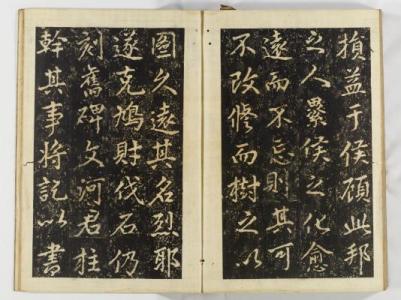 損益于侯顧此邦
之人累侯之化愈
遠而不忘則其可
不改修而樹之以
圖久遠其名烈耶
遂克鳩財伐石仍
刻舊碑文河君柱
幹其事將訖以書